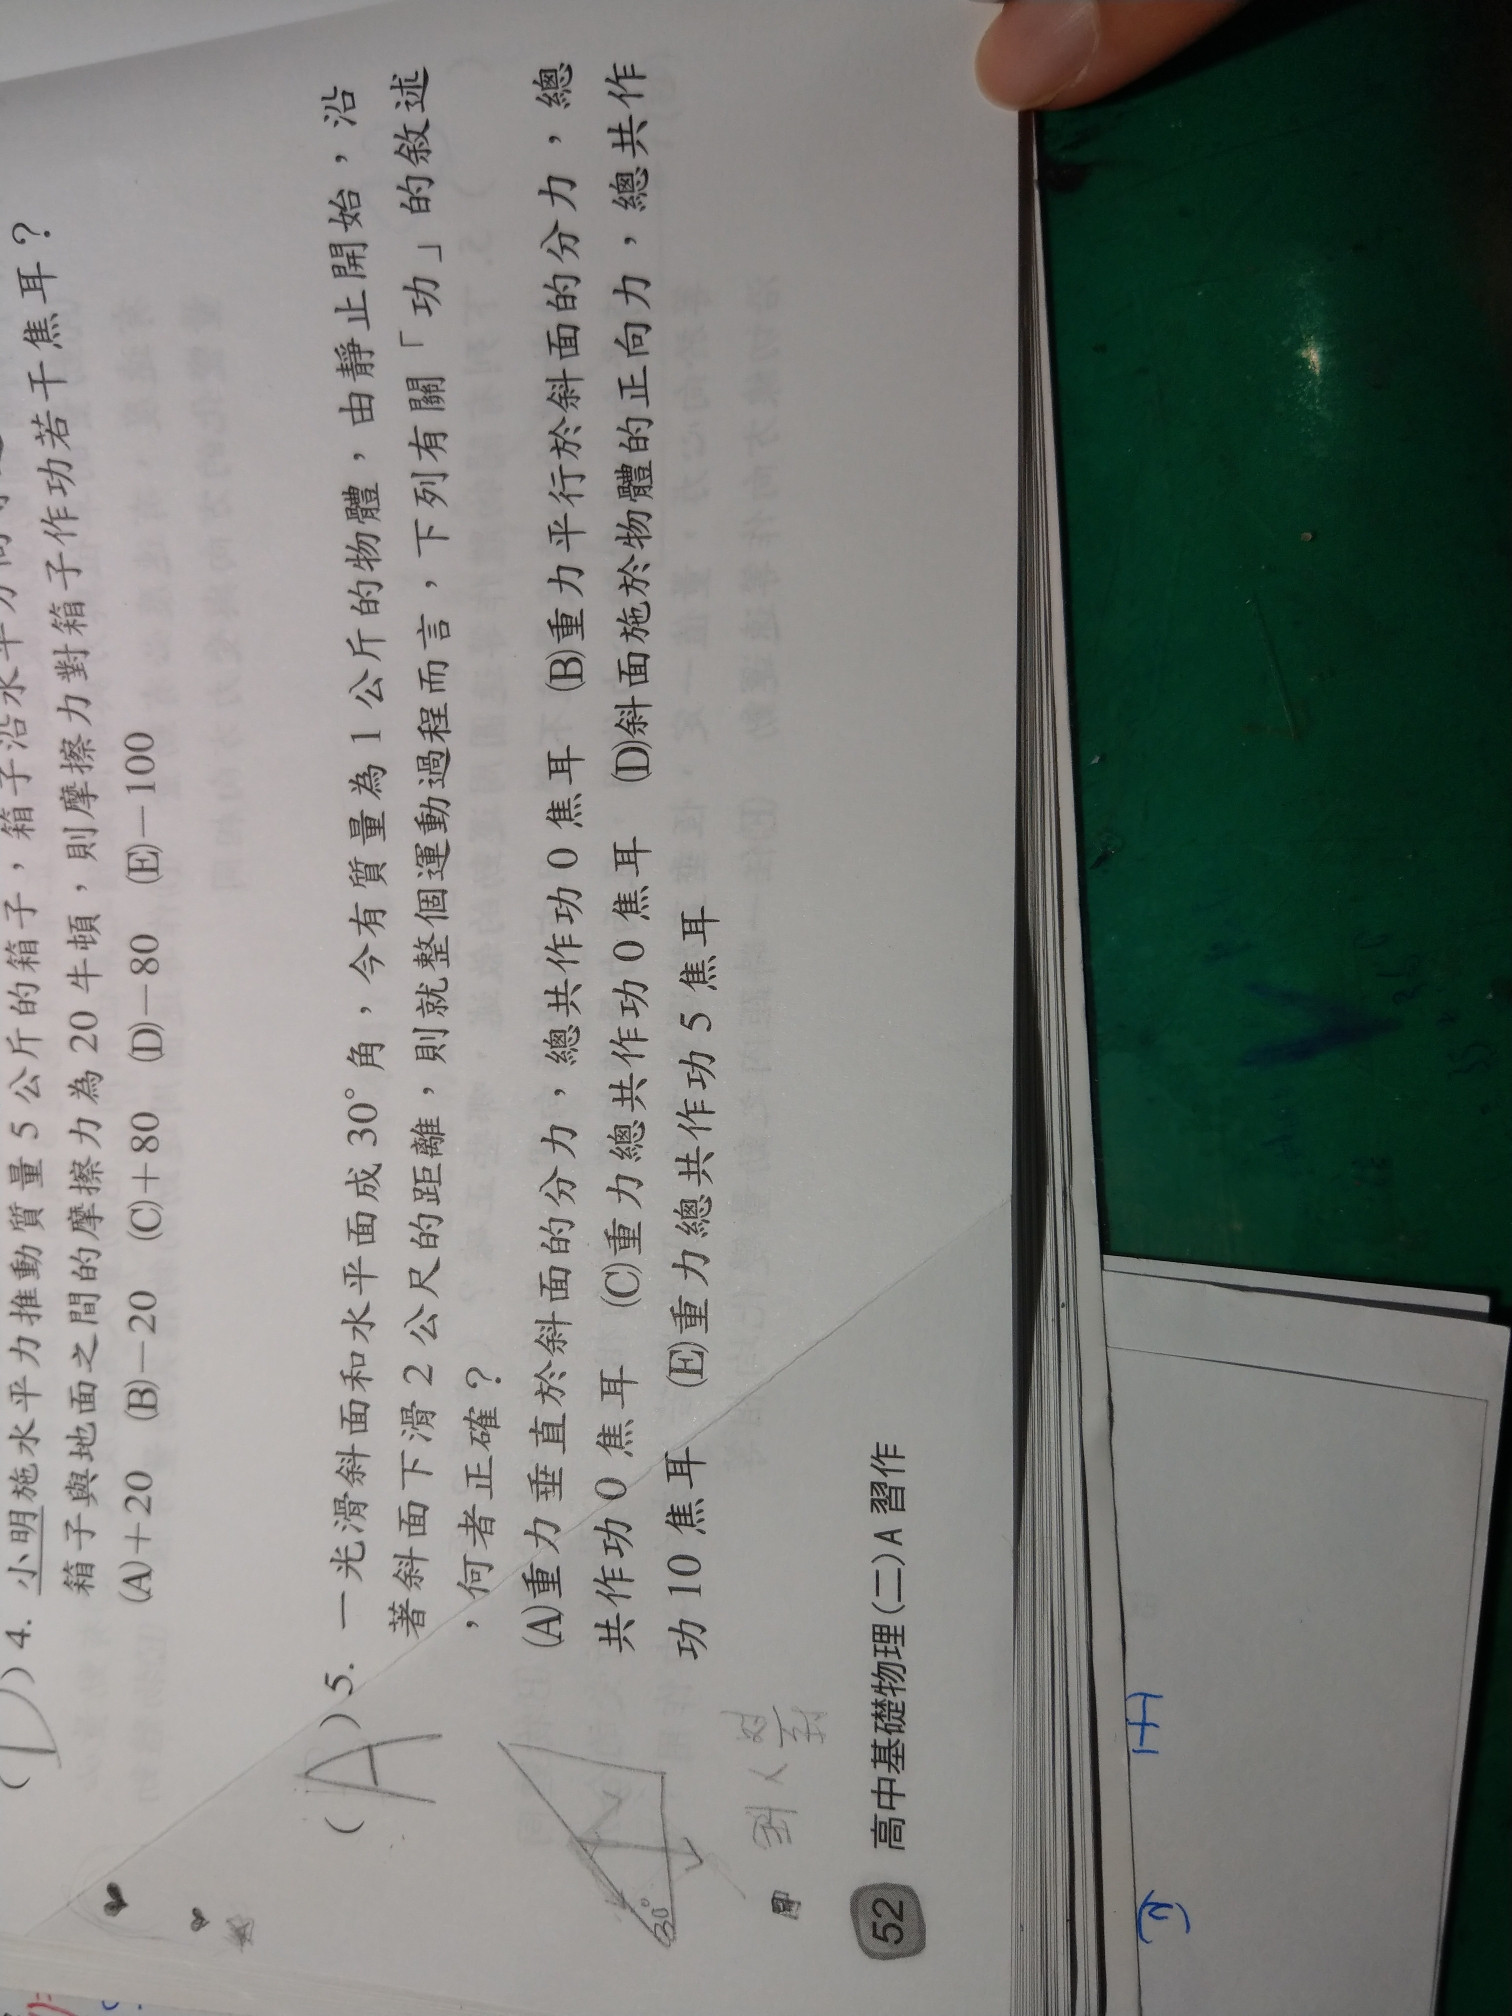 (D)4. 小明施水平力推動質量 5 公斤的箱子，箱子沿水平方向
箱子與地面之間的摩擦力為 20 牛頓，則摩擦力對箱子作功若干焦耳？
(A)＋20 (B)－20 (C)＋80 (D)－80 (E)－100
(A)5. 一光滑斜面和水平面成 30° 角，今有質量為 1 公斤的物體，由靜止開始，沿
著斜面下滑 2 公尺的距離，則就整個運動過程而言，下列有關「功」的敘述
，何者正確？
(A)重力垂直於斜面的分力，總共作功 0 焦耳 (B)重力平行於斜面的分力，總
共作功 0 焦耳 (C)重力總共作功 0 焦耳 (D)斜面施於物體的正向力，總共作
功 10 焦耳 (E)重力總共作功 5 焦耳
30°
52 高中基礎物理(二)A 習作